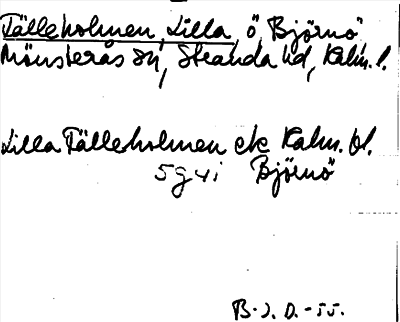 Tälleholmen, Lilla, ö, Björnö
Mönsterås sn, Stranda hd, Kalm. l.
Lilla Tälleholmen ek Kalm. bl.
5g4i Björnö
B-J. D.-55.